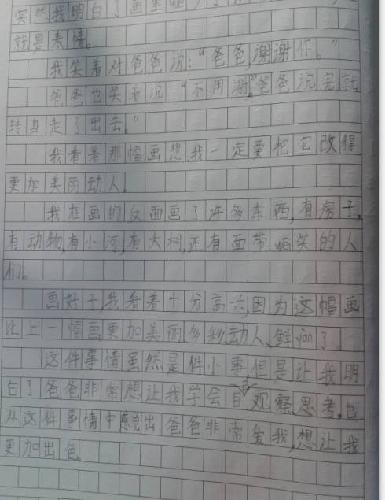 突然我明白了画里
就是亲情。
我笑着对爸爸说:“爸爸,谢谢你。”
爸爸也笑着说“不用谢”爸爸说完就
转身走了出去。
我看着那幅画想我一定要把它改得
更加美丽动人。
我在画的反面画了许多东西,有房子,
有动物,有小河,有大树,还有面带微笑的人
们。
画好了我看着十分高兴因为这幅画
比上一幅画更加美丽动人、鲜
这件事情虽然是件小事但是让我明
白了爸爸非常想让我学会自观察思考,也
从这件事情中感出爸爸非常爱我,想让我
更加出色